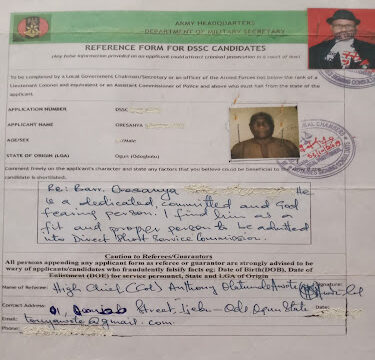 ARMY HEADQUARTERS
DEPARTMENT OF MILITARY SECRETARY
REFERENCE FORM FOR DSSC CANDIDATES
(Any false information provided on an applicant could attract criminal prosecution in a court of law)
To be completed by a Local Government Chairman/Secretary or an officer of the Armed Forces not below the rank of a
Lieutenant Colonel and equivalent or an Assistant Commissioner of Police and above who must hail from the state of
the applicant.
APPLICATION NUMBER DSSC
APPLICANT NAME ORESANYA
AGE/SEX /Male
STATE OF ORIGIN (LGA) Ogun (Odogbolu)
Comment freely on the applicant's character and state any factors that you consider could be beneficial to
candidate is shortlisted.
Re: Barr. Oresanya He
is a dedicated, committed and God
fearing person. I find him as a
fit and proper person to be admitted
into Direct Short Service Commission.
Caution to Referees/Guarantors
All persons appending any applicant form as referee or guarantor are strongly advised to be
wary of applicants/candidates who fraudulently falsify facts eg: Date of Birth(DOB), Date of
Enlistment (DOE) for service personnel, State and LGA of Origin
Name of Referee: High Chief (Col) Anthony
Signature:
Contact Address: Street Ijebu-Ode Ogun State
Date:
Email: @gmail.com
Phone: